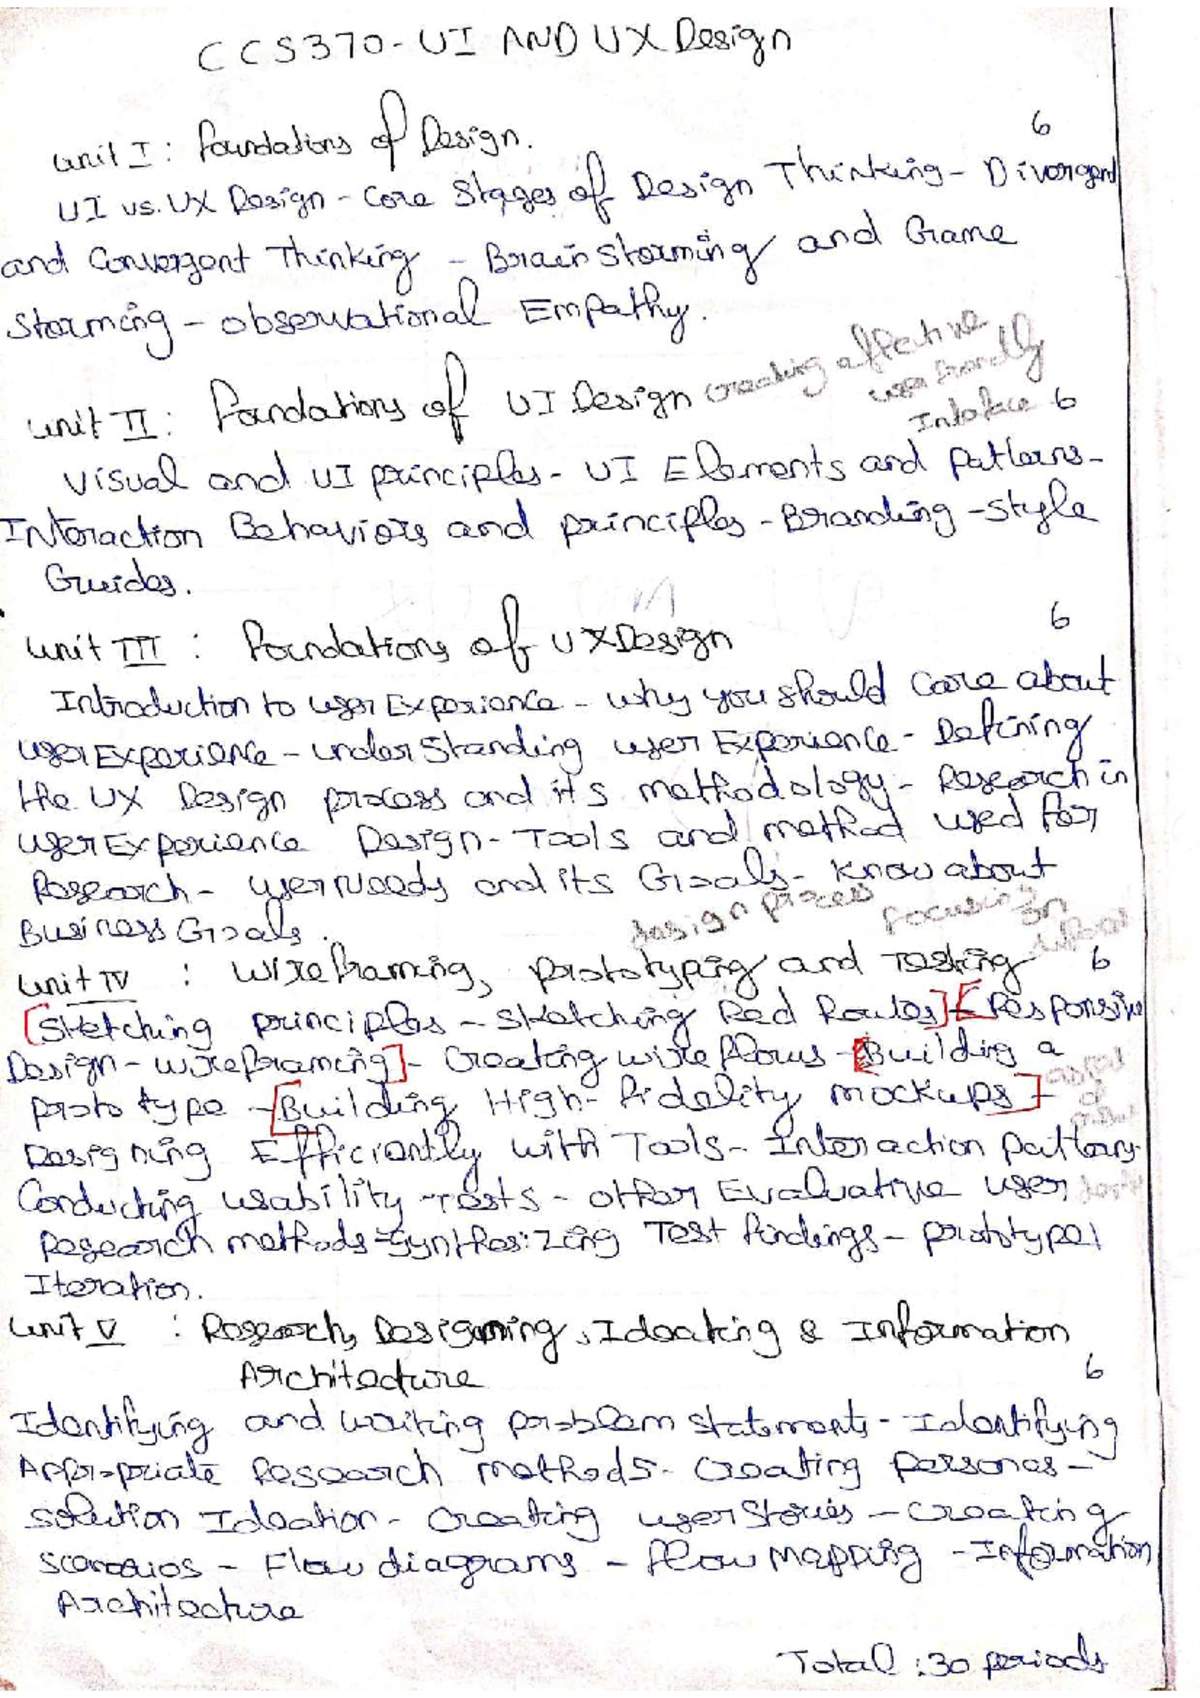 CCS370-UI AND UX Design
Unit I : Foundations of Design. 6
UI vs. UX Design - Core Stages of Design Thinking - Divergent
and Convergent Thinking - Brainstorming and Game
Storming - observational Empathy.
Unit II : Foundations of UI Design creating effective
user friendly
Interface 6
Visual and UI principles - UI Elements and patterns -
Interaction Behaviors and principles - Branding - Style
Guides.
Unit III : Foundations of UX Design 6
Introduction to user Experience - why you should care about
user Experience - understanding user Experience - Defining
the UX Design process and its methodology - Research in
user Experience Design - Tools and method used for
Research - user Needs and its Goals - know about
Business Goals.
design process focusing on
Unit IV : Wireframing, prototyping and Testing 6
[Sketching principles - sketching Red Routes] - [Responsive
Design - wireframing] - Creating wireflows - [Building a
prototype - [Building High-fidelity mockups] -
Designing Efficiently with Tools - Interaction pattern -
Conducting usability - Tests - other Evaluative user
Research methods - synthesizing Test findings - prototype
Iteration.
Unit V : Research, Designing, Ideating & Information
Architecture 6
Identifying and writing problem statements - Identifying
Appropriate Research methods - creating personas -
solution Ideation - creating user stories - creating
scenarios - Flow diagrams - flow mapping - Information
Architecture
Total : 30 periods